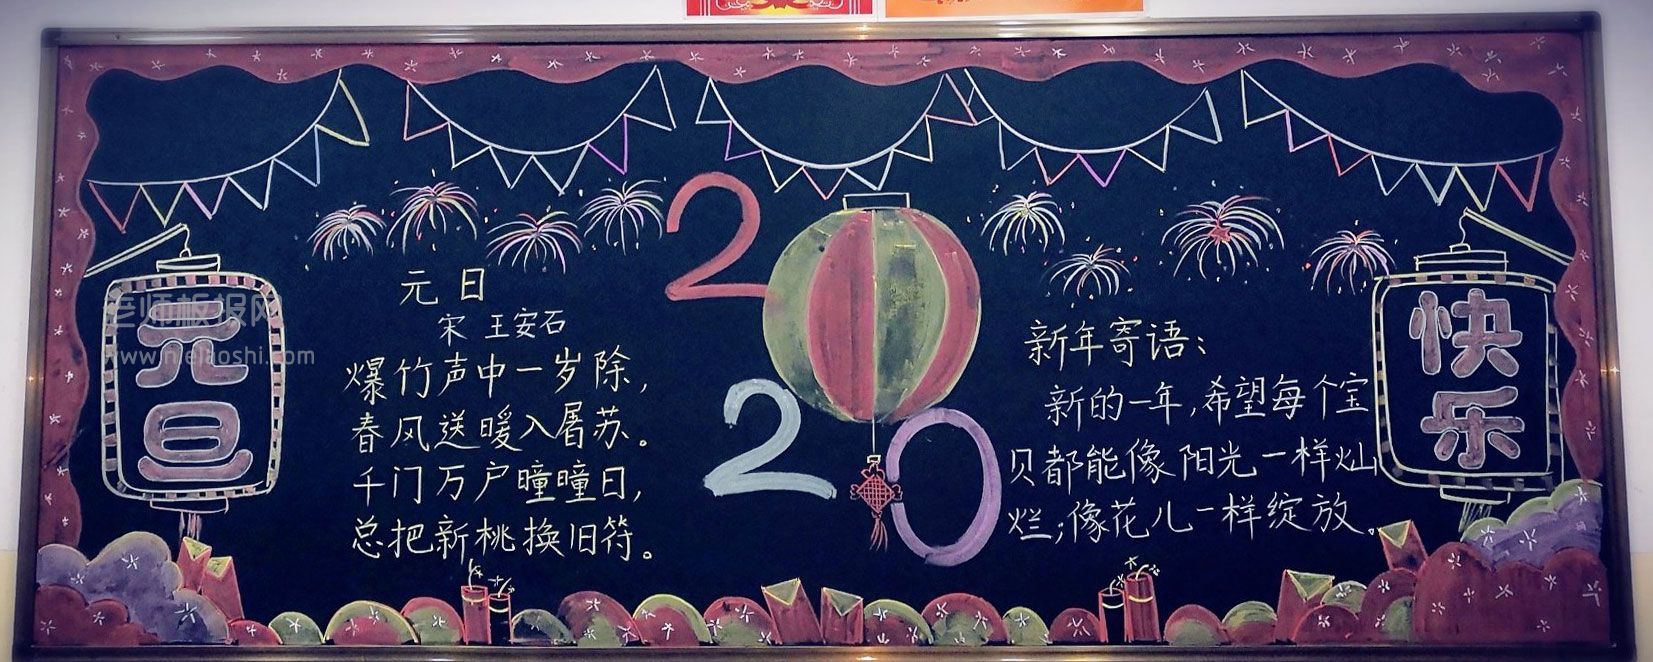 元
旦
老师板报网
www.nielaoshi.com
元日
宋 王安石
爆竹声中一岁除，
春风送暖入屠苏。
千门万户曈曈日，
总把新桃换旧符。
2
2
0
新年寄语：
新的一年，希望每个宝
贝都能像阳光一样灿
烂；像花儿一样绽放。
快
乐